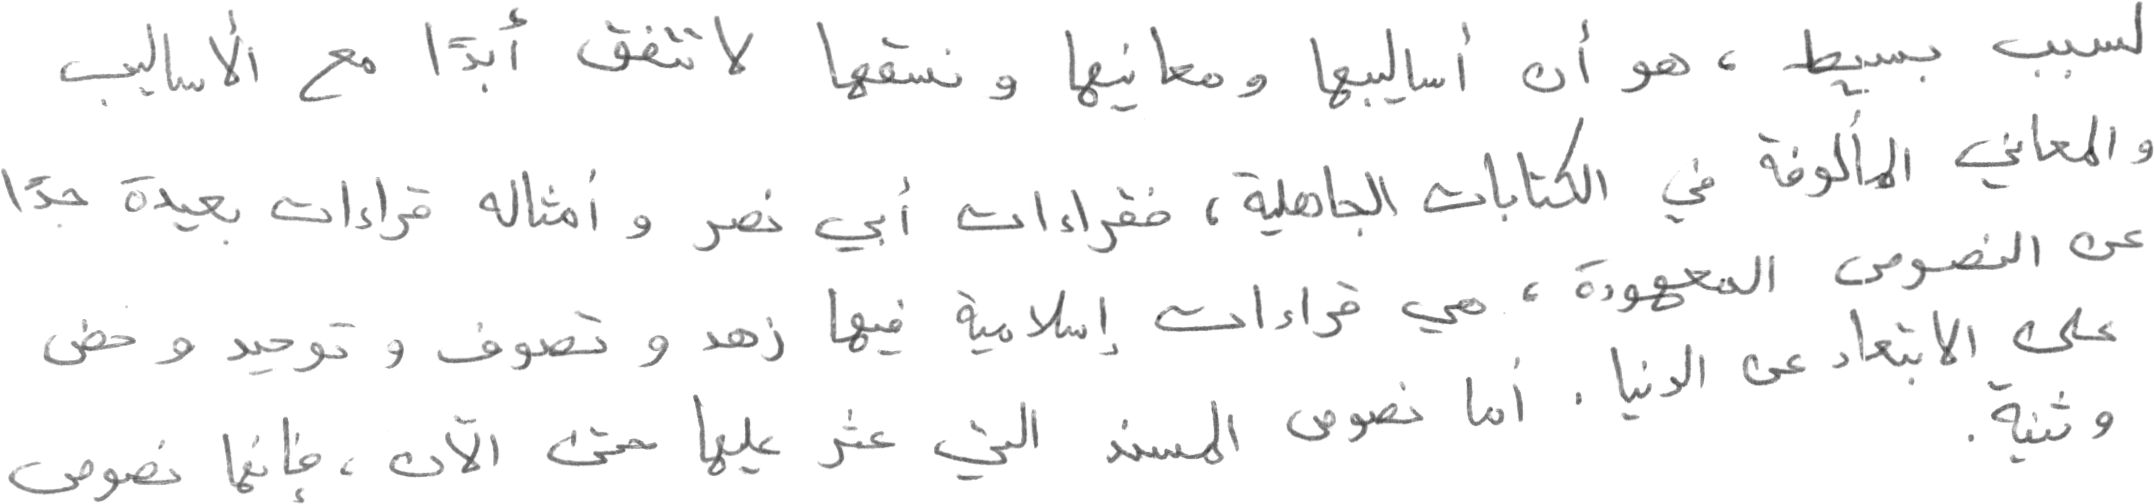 لسبب بسيط ، هو أن أساليبها ومعانيها ونسقها لا تتفق أبدًا مع الأساليب
والمعاني المألوفة في الكتابات الجاهلية ، فقراءات أبي نصر وأمثاله قراءات بعيدة جدًا
عن النصوص المعهودة ، هي قراءات إسلامية فيها زهد وتصوف وتوحيد وحض
على الابتعاد عن الدنيا . أما نصوص المسند التي عثر عليها حتى الآن ، فإنما نصوص
وثنية .